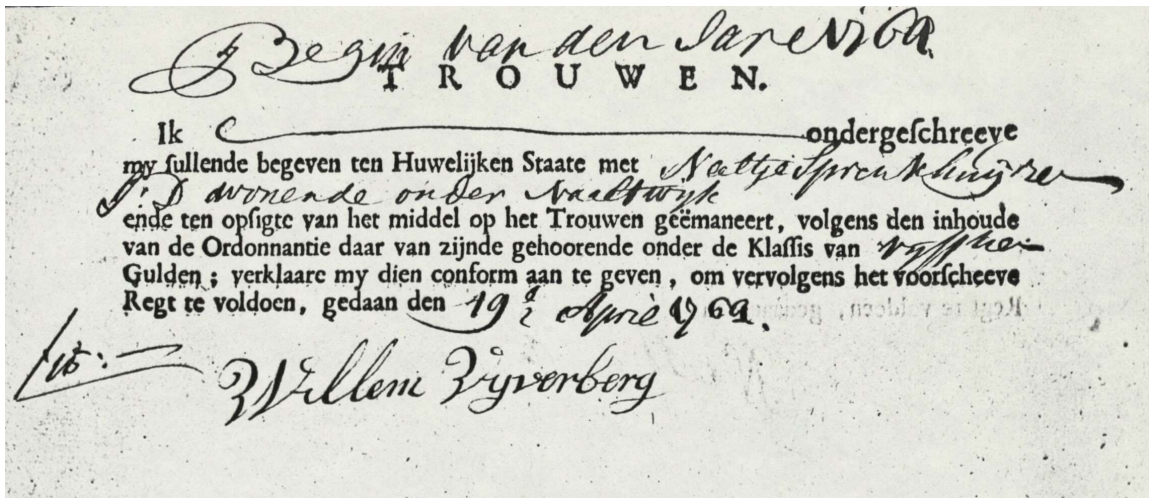 Begin van den Jare 1769
TROUWEN.
Ik ondergeschreeve
my sullende begeven ten Huwelijken Staate met Neeltje
J: D wonende onder Naaltwyk
ende ten opsigte van het middel op het Trouwen geëmaneert, volgens den inhoude
van de Ordonnantie daar van zijnde gehoorende onder de Klassis van vyftien
Gulden; verklaare my dien conform aan te geven, om vervolgens het voorscheeve
Regt te voldoen, gedaan den 19e April 1769.
Willem Vyverberg